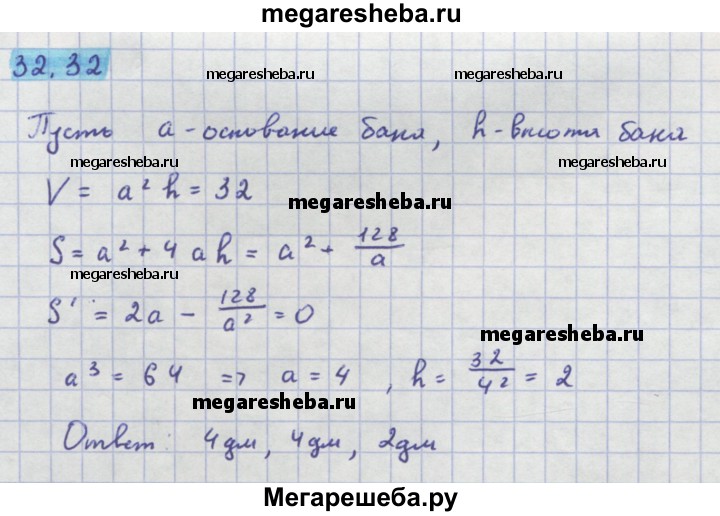 megaresheba.ru
32.32
megaresheba.ru megaresheba.ru
Пусть a - основание бака, h - высота бака
megaresheba.ru megaresheba.ru
V = a² h = 32
megaresheba.ru
S = a² + 4 a h = a² + 128/a
megaresheba.ru
S' = 2a - 128/a² = 0
megaresheba.ru
a³ = 64 => a = 4 , h = 32/4² = 2
megaresheba.ru
Ответ: 4дм, 4дм, 2дм
Мегарешеба.ру